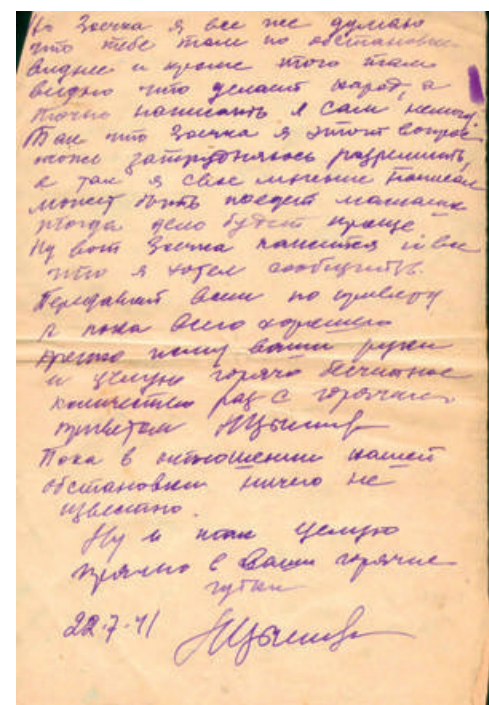 но Зоечка я все же думаю
что тебе там по обстановке
виднее и кроме того там
видно что делает народ, а
точно написать я сам не могу.
Так что Зоечка я этот вопрос
тоже затрудняюсь разрешить,
а так я свое мнение написал
может быть поедет мамаша
тогда дело будет проще
Ну вот Зоечка кажется и все
что я хотел сообщить.
Передавай всем по привету
и пока всего хорошего
крепко жму ваши руки
и целую горячо бесчисленное
количество раз с горячим
приветом
Пока в отношении нашей
обстановки ничего не
известно.
Ну и так целую
прямо в ваши горячие
губки
22.7.41